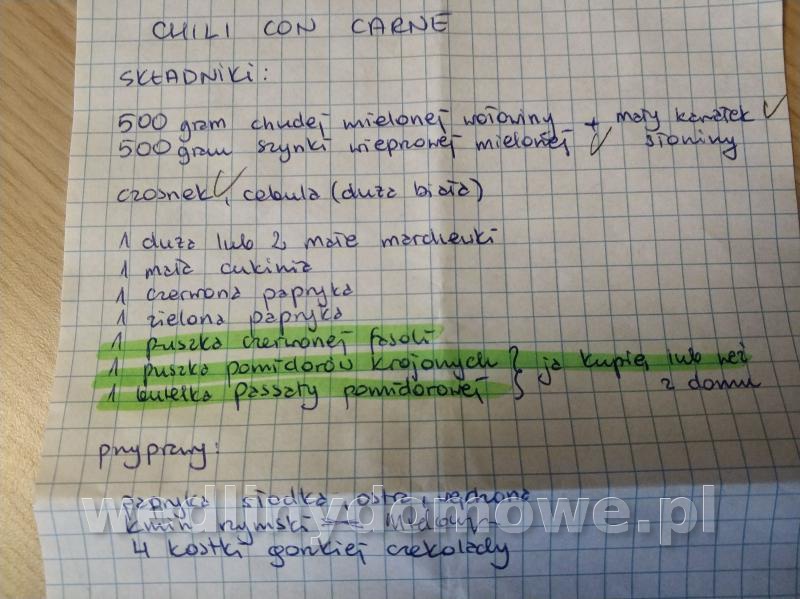 CHILI CON CARNE
SKŁADNIKI:
500 gram chudej mielonej wołowiny + mały kawałek
500 gram szynki wieprzowej mielonej słoniny
czosnek, cebula (duża biała)
1 duża lub 2 małe marchewki
1 mała cukinia
1 czerwona papryka
1 zielona papryka
1 puszka czerwonej fasoli
1 puszka pomidorów krojonych } ja kupię lub też
1 butelka passaty pomidorowej z domu
przyprawy:
papryka słodka, ostra, wędzona
kmin rzymski
4 kostki gorzkiej czekolady
wedlinydomowe.pl